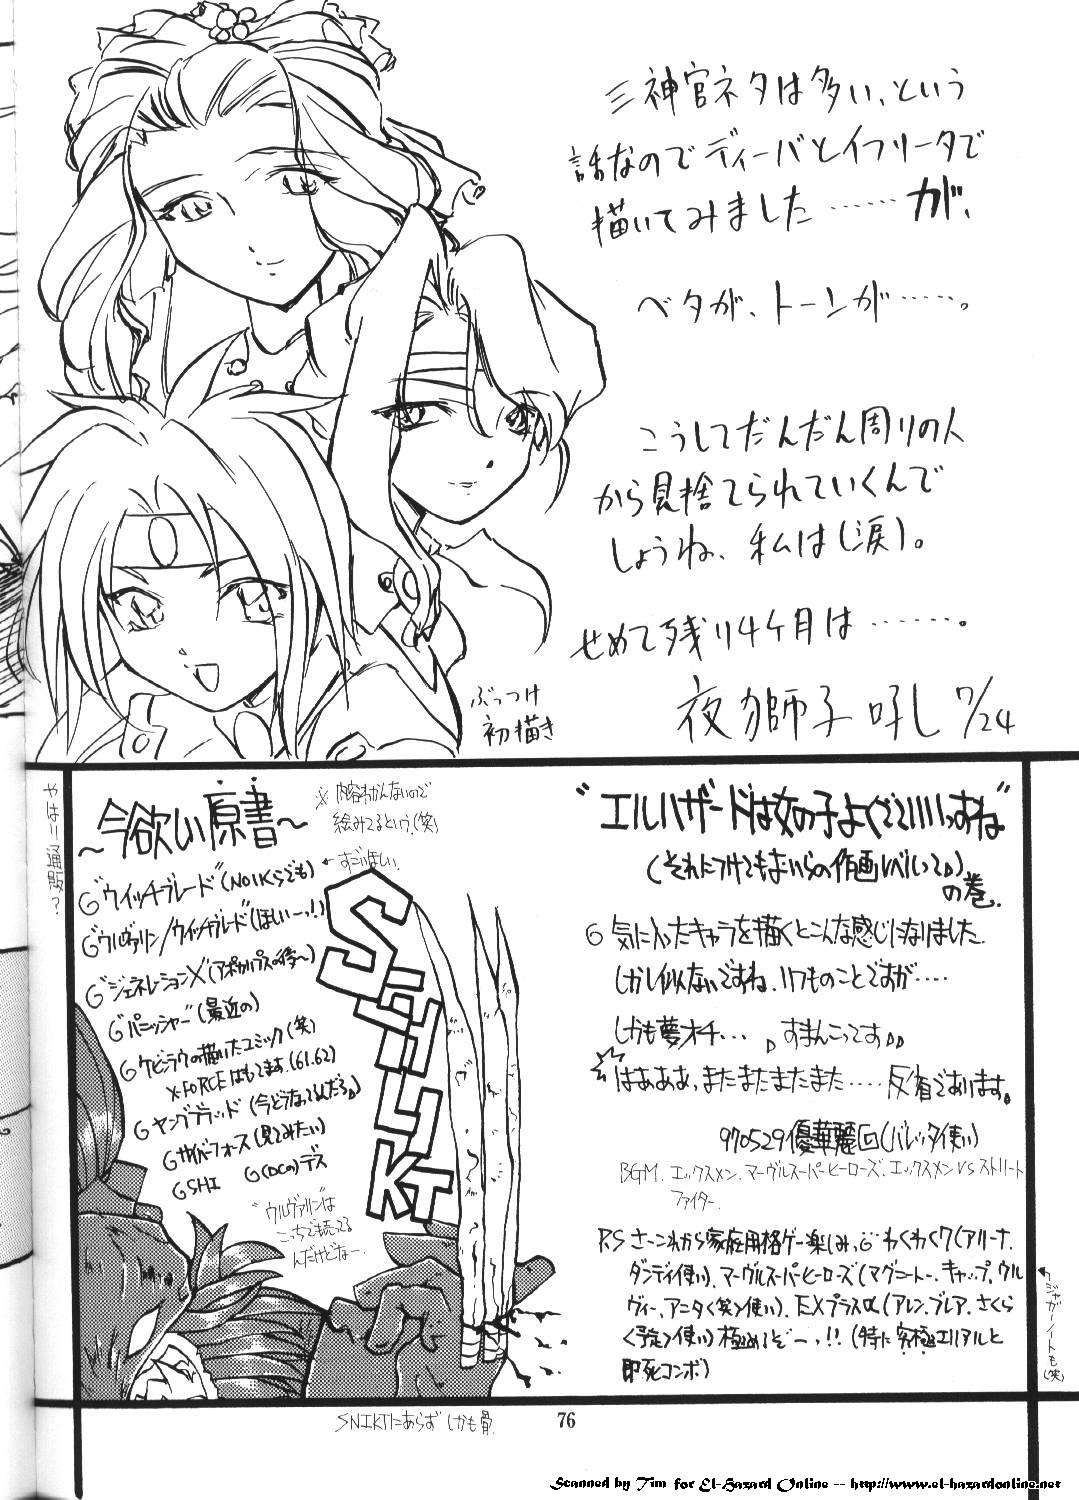 三神官ネタは多い、という
話なのでディーバとイフリータで
描いてみました……が、
ベタが、トーンが……。
こうしてだんだん周りの人
から見捨てられていくんで
しょうね、私は(涙)。
せめて残り4ケ月は……。
夜獅子吼し 7/24
ぶっつけ
初描き
"エルハザードは女の子よくていいっすね"
(それにつけてもおいらの作画レベルって)
の巻
気に入ったキャラを描くとこんな感じになりました.
しかし似ないですね、いつものことですが....
しかも夢オチ... すまんこってす
はあああ、またまたまたまた..... 反省であります。
970529 優華麗 (バレッタ使い)
BGM. エックスメン、マーヴルスーパーヒーローズ、エックスメンVSストリート
ファイター.
P.S さーこれから家庭用格ゲー楽しみ、わくわく7(アリーナ、
ダンディ使い)、マーヴルスーパーヒーローズ(マグニートー、キャップ、ウル
ヴィー、アニタ<笑>使い)、EXプラスα(アレン、ブレア、さくら
<予定>使い)極めるぞーっ!!(特に究極エリアルと
即死コンボ)
ジャガーノートも(笑)
~今欲しい原書~
※内容わかんないので
絵みてるという.(笑)
"ウイッチブレード"(NO1Kらでも)
←すごいほしい.
"ウルヴァリン/ウイッチブレード"(ほしいーっ!)
"ジェネレーションX"(アポカリプスの後~)
"パニッシャー"(最近の)
ケビンラウの描いたコミック(笑)
X-FORCEはもてます.(61.62)
ヤングブラッド(今どうなってんだろ)
サイバーフォース(見てみたい)
SHI
(DCの)デス
"ウルヴァリン"は
こっちでも売ってる
んだけどなー.
やはり通販?
SNIKT
SNIKTにあらず しかも骨.
76
Scanned by Tim for El-Hazard Online -- http://www.el-hazardonline.net